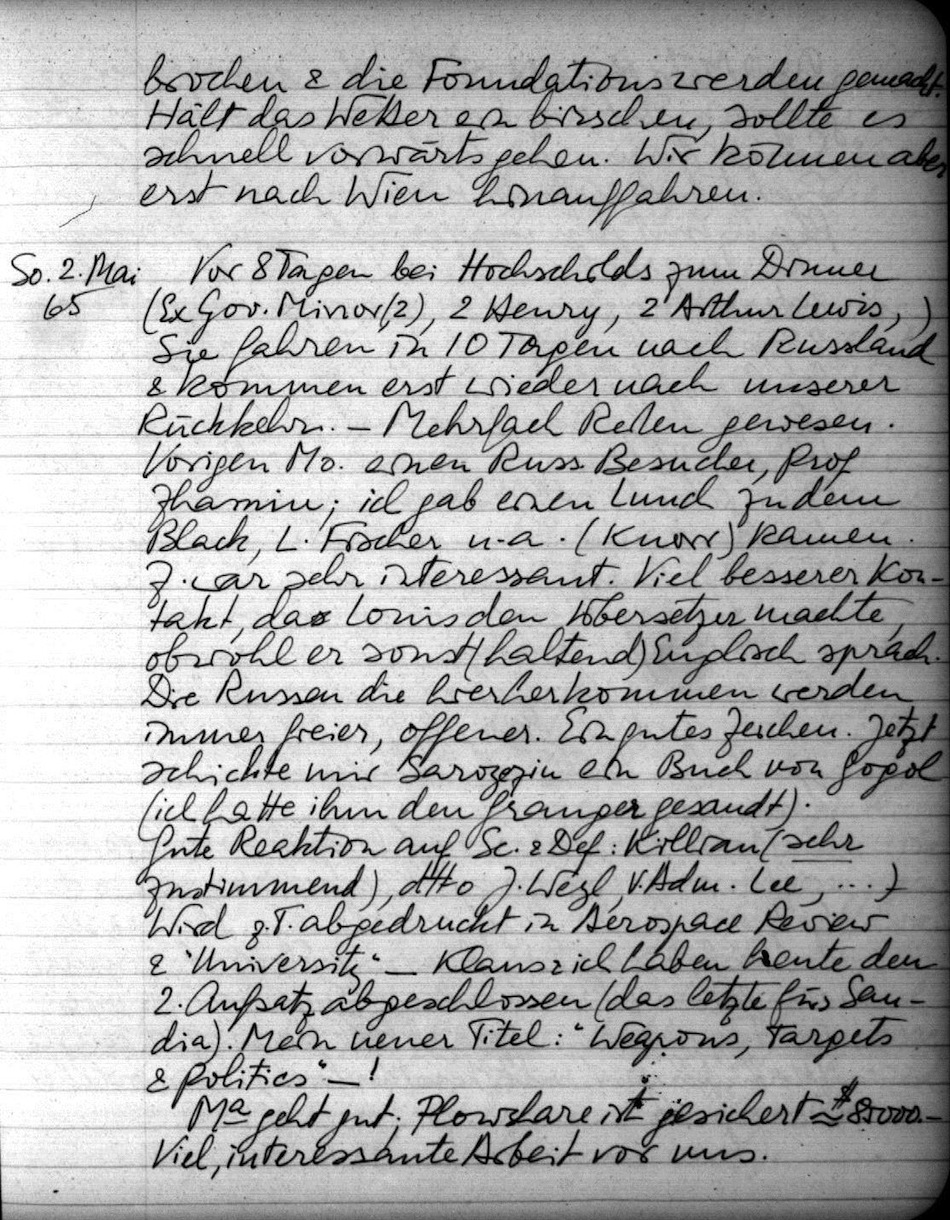 brochen & die Foundations werden gemacht.
Hält das Wetter ein bisschen, sollte es
schnell vorwärts gehen. Wir können aber
erst nach Wien hinauffahren.
So. 2. Mai Vor 8 Tagen bei Hochschilds zum Dinner
65 (Ex Gov. Minor (2), 2 Henry, 2 Arthur Lewis, )
Sie fahren in 10 Tagen nach Russland
& kommen erst wieder nach unserer
Rückkehr. – Mehrfach Reden gewesen.
Vorigen Mo. einen Russ. Besucher, Prof
Zhamin; ich gab einen Lunch zu dem
Black, L. Fischer u.a. (Knorr) kamen.
Z. war sehr interessant. Viel besserer Kon-
takt, da Louis den Übersetzer machte,
obwohl er sonst (haltend) Englisch sprach.
Die Russen die hierherkommen werden
immer freier, offener. Ein gutes Zeichen. Jetzt
schickte mir ein Buch von Gogol
(ich hatte ihm den Granger gesandt).
Gute Reaktion auf Sc. & Def: Killian (sehr
zustimmend), ditto J. V. Adm. Lee, ... )
Wird z.T. abgedruckt in Aerospace Review
& "University" – Klaus & ich haben heute den
2. Aufsatz abgeschlossen (das letzte für San-
dia). Mein neuer Titel: "Weapons, Targets
& Politics" – !
Ma geht gut; Plowshare ist gesichert ≈ $ 85000.–
Viel, interessante Arbeit vor uns.